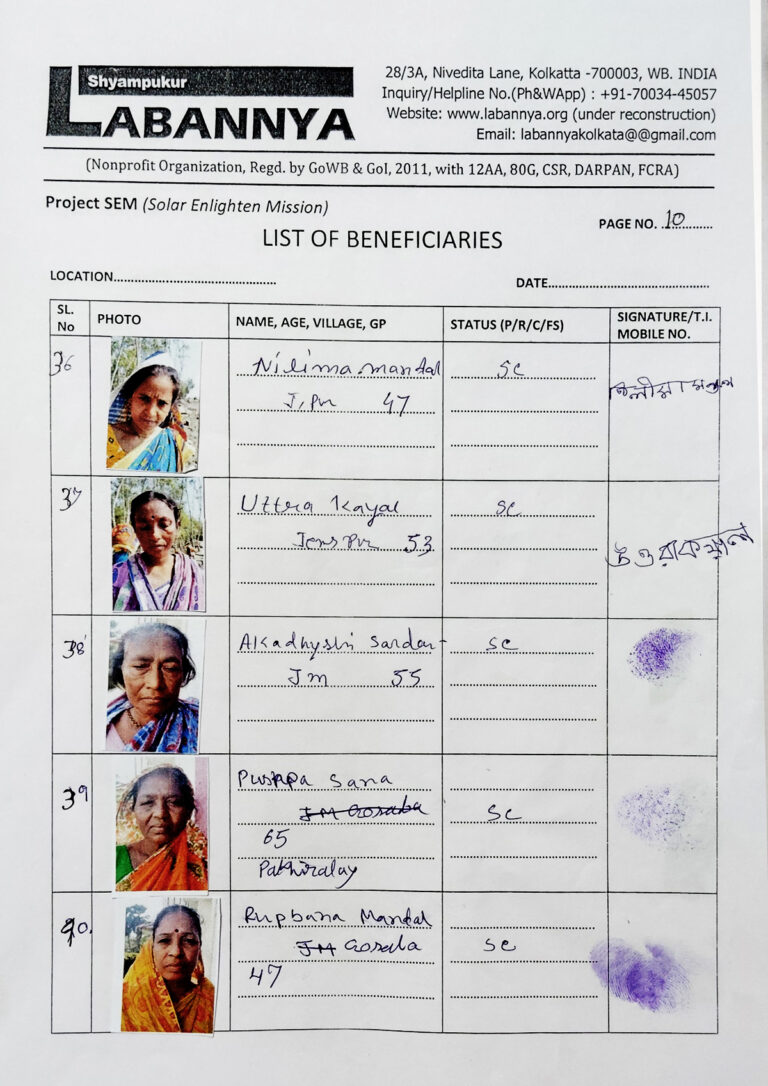 Shyampukur
LABANNYA
28/3A, Nivedita Lane, Kolkatta -700003, WB. INDIA
Inquiry/Helpline No.(Ph&WApp) : +91-70034-45057
Website: www.labannya.org (under reconstruction)
Email: labannyakolkata@@gmail.com
(Nonprofit Organization, Regd. by GoWB & GoI, 2011, with 12AA, 80G, CSR, DARPAN, FCRA)
Project SEM (Solar Enlighten Mission)
PAGE NO. 10
LIST OF BENEFICIARIES
LOCATION
DATE
SL. No PHOTO NAME, AGE, VILLAGE, GP STATUS (P/R/C/FS) SIGNATURE/T.I. MOBILE NO.
36 Nilima mandal SC
47
37 Uttra Kayal SC উত্তরা কয়াল
53
38 Sardar SC
Jm 55
39 Puspa Sana
JM Gosaba SC
65
Pakhiralay
40. Rupbana Mandal
JM Gosaba SC
47